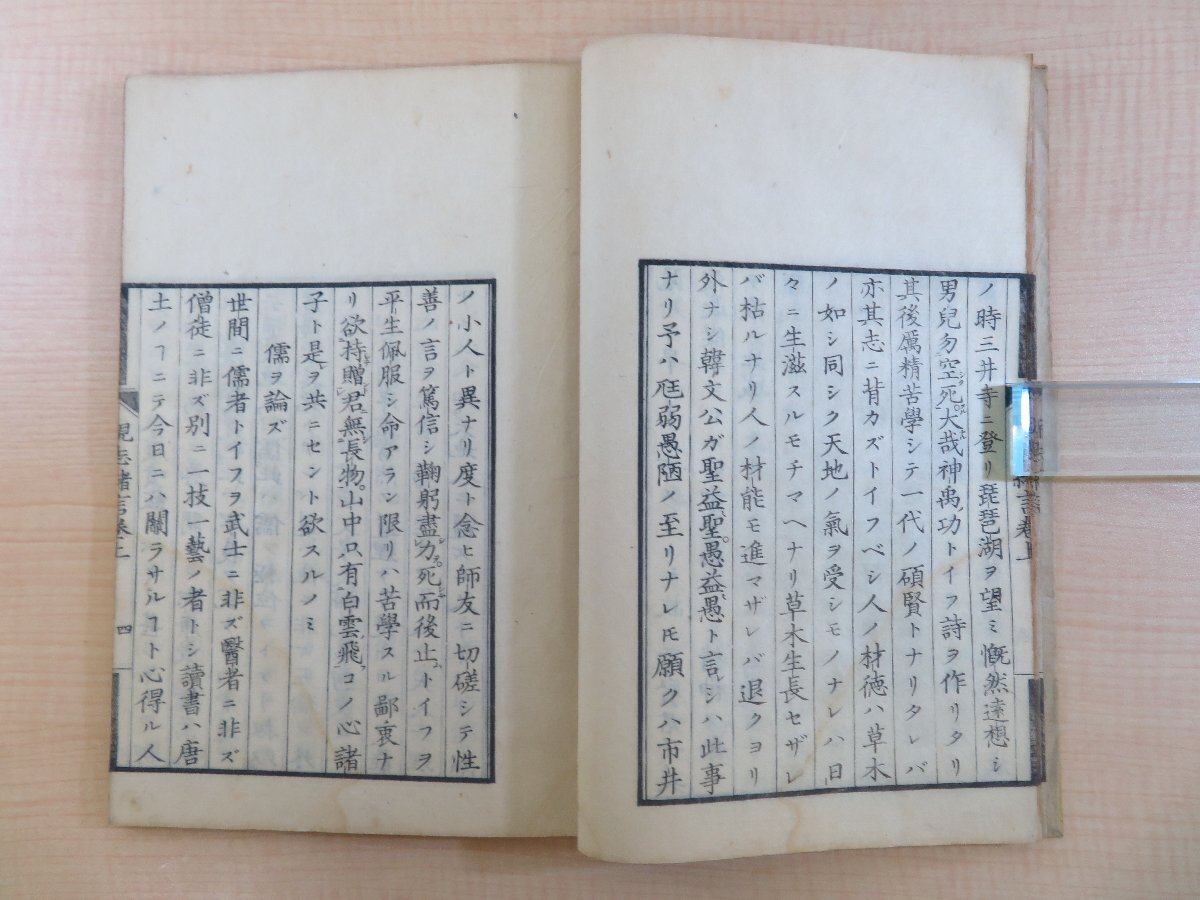 ノ時三井寺ニ登リ琵琶湖ヲ望ミ慨然遠想シ
男兒勿空死大哉神禹功トイフ詩ヲ作リタリ
其後厲精苦學シテ一代ノ碩賢トナリタレバ
亦其志ニ背カズトイフベシ人ノ材徳ハ草木
ノ如シ同シク天地ノ氣ヲ受シモノナレハ日
々ニ生滋スルモチマヘナリ草木生長セザレ
バ枯ルナリ人ノ材能モ進マザレバ退クヨリ
外ナシ韓文公ガ聖益聖愚益愚ト言シハ此事
ナリ予ハ尫弱愚陋ノ至リナレ𪜈願クハ市井
ノ小人ト異ナリ度ト念ヒ師友ニ切磋シテ性
善ノ言ヲ篤信シ鞠躬盡力死而後止トイフヲ
平生佩服シ命アラン限リハ苦學スル鄙衷ナ
リ欲持贈君無長物山中只有白雲飛コノ心諸
子ト是ヲ共ニセント欲スルノミ
儒ヲ論ズ
世間ニ儒者トイフヲ武士ニ非ズ醫者ニ非ズ
僧徒ニ非ズ別ニ一技一藝ノ者トシ讀書ハ唐
土ノヿニテ今日ニハ關ラサルヿト心得ル人
四